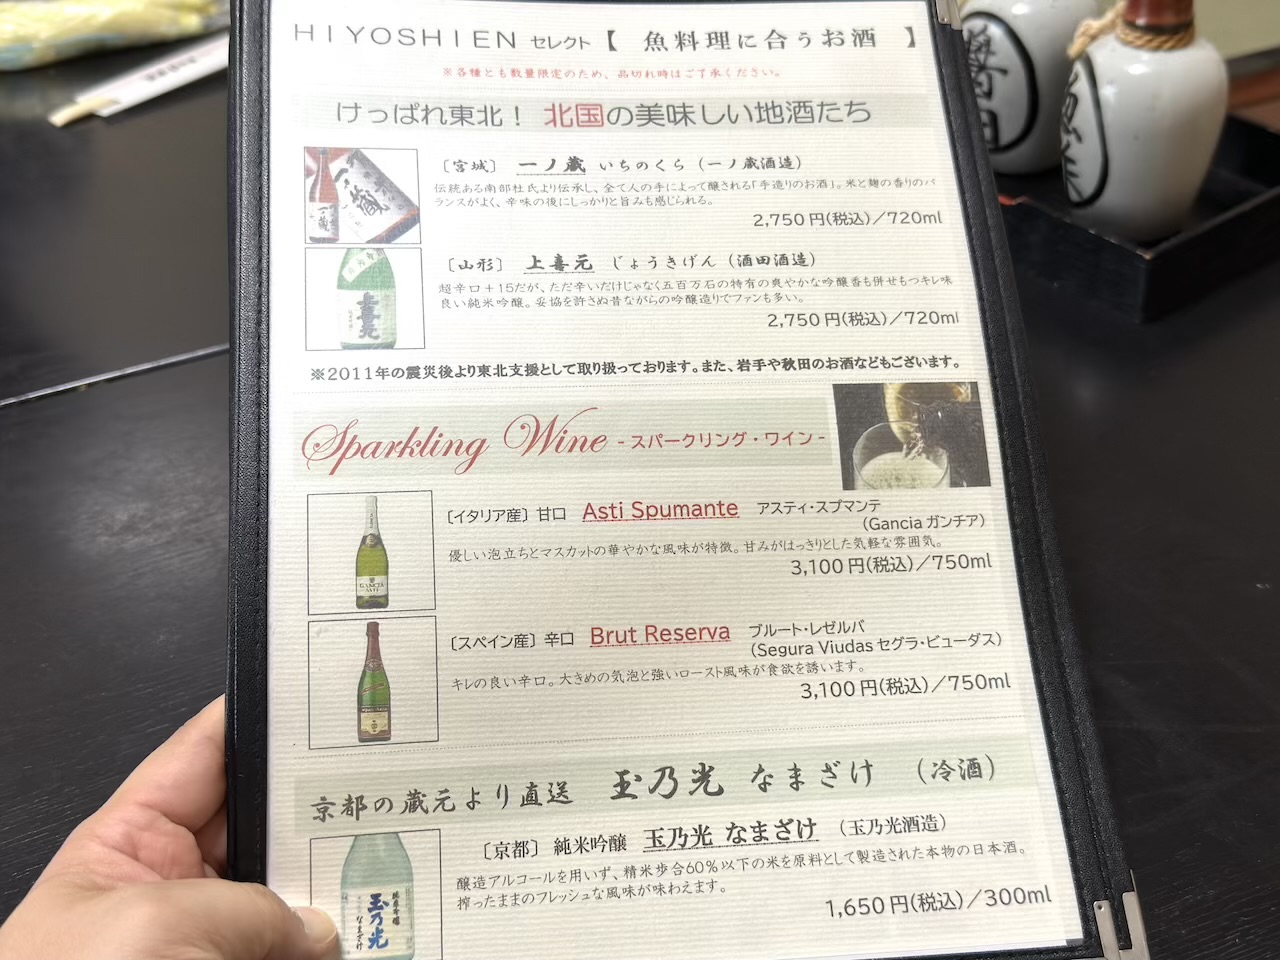 HIYOSHIEN セレクト【 魚料理に合うお酒 】
※各種とも数量限定のため、品切れ時はご了承ください。
けっぱれ東北! 北国の美味しい地酒たち
〔宮城〕 一ノ蔵 いちのくら (一ノ蔵酒造)
伝統ある南部杜氏より伝承し、全て人の手によって醸される「手造りのお酒」。米と麹の香りのバ
ランスがよく、辛味の後にしっかりと旨みも感じられる。
2,750円(税込)/720ml
〔山形〕 上喜元 じょうきげん (酒田酒造)
超辛口+15だが、ただ辛いだけじゃなく五百万石の特有の爽やかな吟醸香も併せもつキレ味
良い純米吟醸。妥協を許さぬ昔ながらの吟醸造りでファンも多い。
2,750円(税込)/720ml
※2011年の震災後より東北支援として取り扱っております。また、岩手や秋田のお酒などもございます。
Sparkling Wine -スパークリング・ワイン-
〔イタリア産〕 甘口 Asti Spumante アスティ・スプマンテ
(Gancia ガンチア)
優しい泡立ちとマスカットの華やかな風味が特徴。甘みがはっきりとした気軽な雰囲気。
3,100円(税込)/750ml
GANCIA
ASTI
〔スペイン産〕 辛口 Brut Reserva ブルート・レゼルバ
(Segura Viudas セグラ・ビューダス)
キレの良い辛口。大きめの気泡と強いロースト風味が食欲を誘います。
3,100円(税込)/750ml
京都の蔵元より直送 玉乃光 なまざけ (冷酒)
〔京都〕 純米吟醸 玉乃光 なまざけ (玉乃光酒造)
醸造アルコールを用いず、精米歩合60%以下の米を原料として製造された本物の日本酒。
搾ったままのフレッシュな風味が味わえます。
1,650円(税込)/300ml
一ノ蔵
上喜元
純米吟醸
玉乃光
なまざけ